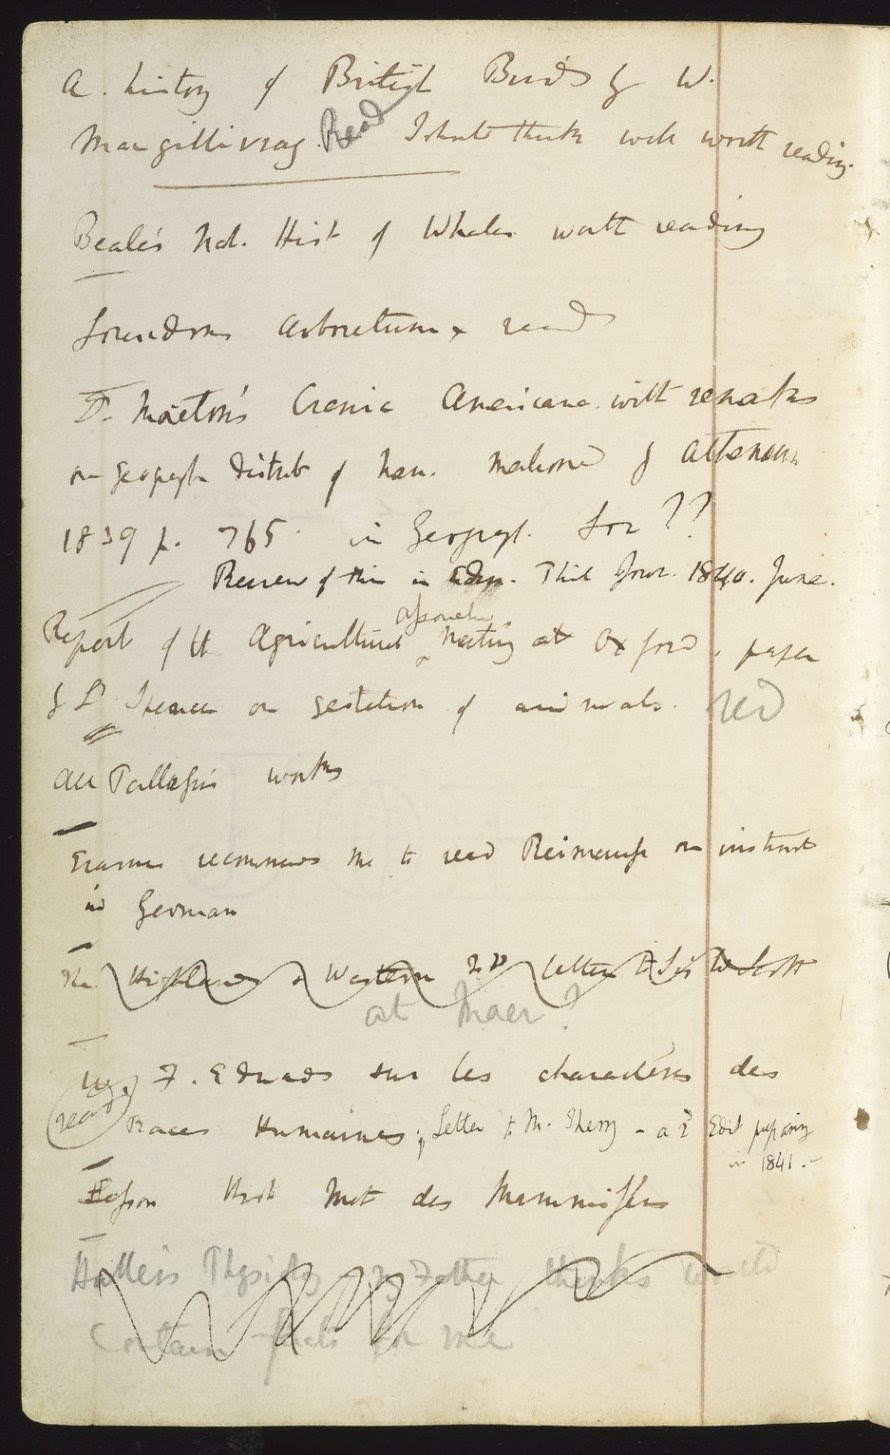 A. history of British Birds by W.
Macgillivray. Read I should think well worth reading.
Beale's Nat. Hist of Whales worth reading
Loudons Arboretum read
Dr. Morton's Crania Americana. with remarks
on geograph distrib of man. mentioned in Athenaeum
1839 p. 765. in Geograph. Soc ??
Review of this in Edin. Phil Jour. 1840. June.
association
Report of the Agricultural meeting at Oxford, paper
by Ld Spencer on gestation of animals. red
All Pallas's works
Erasmus recommends me to read Reimarus on instinct
in German
The Highlands & Western Isd letter to Sir W Scott
at Maer?
W. F. Edwards sur les charactères des
read Races Humaines; Letter to M. Thierry - a 2d Edit preparing
in 1841. -
Lesson Hist Nat des Mammifères
Haller's Physiology my Father thinks would
contain facts for me